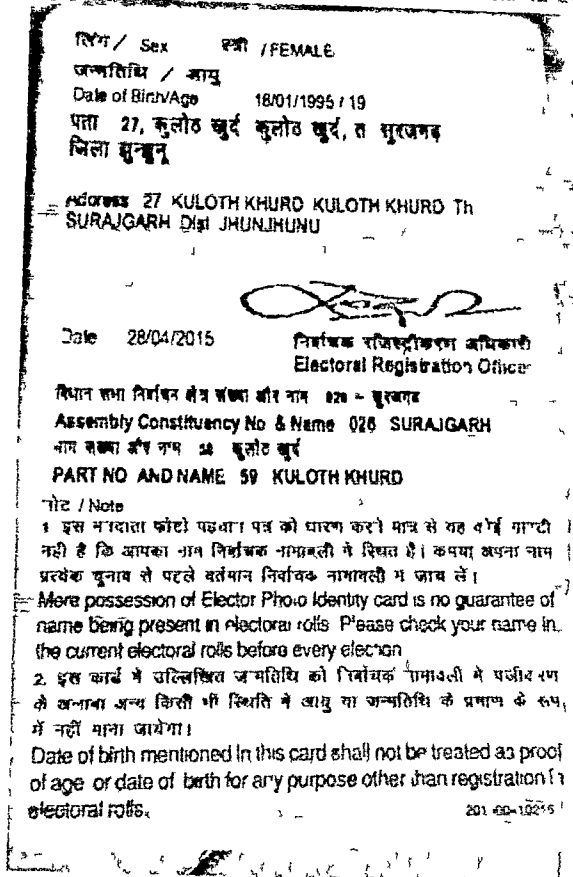 लिंग / Sex स्त्री / FEMALE
जन्मतिथि / आयु
Date of Birth/Age 18/01/1995 / 19
पता 27, कुलोठ खुर्द कुलोठ खुर्द, त सुरजगढ
जिला झुन्झुनू
Address 27 KULOTH KHURD KULOTH KHURD Th
SURAJGARH Dist JHUNJHUNU
Date 28/04/2015
निर्वाचक रजिस्ट्रीकरण अधिकारी
Electoral Registration Officer
विधान सभा निर्वाचन क्षेत्र संख्या और नाम 026 – सुरजगढ
Assembly Constituency No & Name 026 SURAJGARH
भाग संख्या और नाम कुलोठ खुर्द
PART NO AND NAME 59 KULOTH KHURD
नोट / Note
1 इस मतदाता फोटो पहचान पत्र को धारण करने मात्र से यह कोई गारन्टी
नही है कि आपका नाम निर्वाचक नामावली मे स्थित है। कृपया अपना नाम
प्रत्येक चुनाव से पहले वर्तमान निर्वाचक नामावली में जाच लें।
Mere possession of Elector Photo Identity card is no guarantee of
name being present in electoral rolls Please check your name in
the current electoral rolls before every election
2. इस कार्ड में उल्लिखित जन्मतिथि को निर्वाचक नामावली मे पंजीकरण
के अलावा अन्य किसी भी स्थिति में आयु या जन्मतिथि के प्रमाण के रूप
में नहीं माना जायेगा।
Date of birth mentioned in this card shall not be treated as proof
of age or date of birth for any purpose other than registration in
electoral rolls.